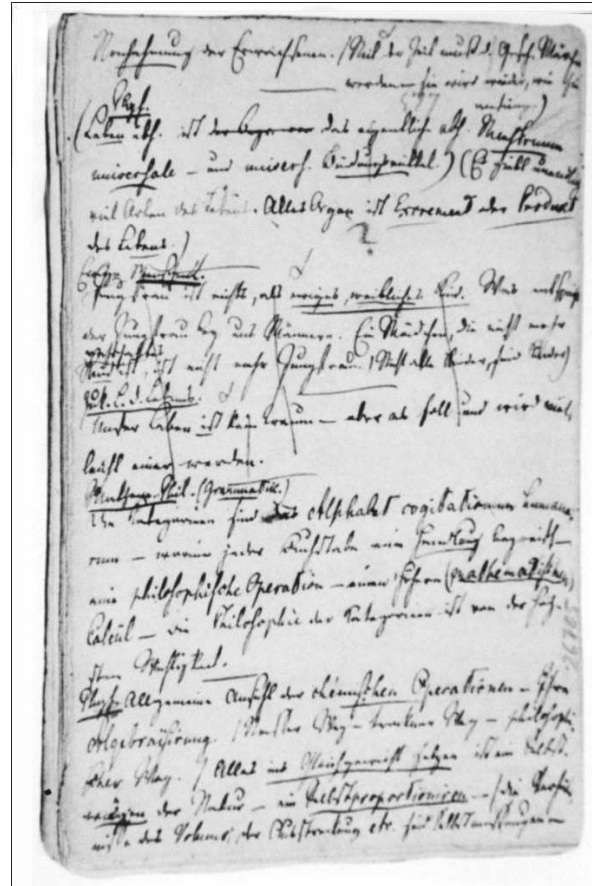 Nachahmung der Erwachsenen. (Mit der Zeit muß d. Gesch. Märchen
werden – sie wird wieder, wie sie
anfieng.)
Phys.
(Leben übh. ist das eigentliche abs. Menstruum
universale – und univers. Bindungsmittel.) (Es giebt unendlich
viel Arten des Lebens. Alles Organ ist Excrement oder Product
des Lebens.)
?
Jungfrau ist nichts, als ewiges, weibliches Kind. Was entspricht
der Jungfrau bey uns Männern. Ein Mädchen, die nicht mehr
wahrhaftes
Kind ist, ist nicht mehr Jungfrau. (Nicht alle Kinder, sind Kinder)
Zuk. L. d. Lebens.
Unser Leben ist kein Traum – aber es soll und wird viel-
leicht einer werden.
Mathem. Phil. (Grammatik.)
Die Kategorieen sind das Alphabet cogitationum humana-
rum – worinn jeder Buchstabe eine Handlung begreift –
eine philosophische Operation – einen höhern (mathematischen)
Calcül – Die Philosophie der Kategorieen ist von der höch-
sten Wichtigkeit.
Phys. Allgemeine Ansicht der chémischen Operationen – Ihre
Algebraïsirung. (Nasser Weg – trockner Weg – philosophi-
scher Weg.) Alles ins Gleichgewicht setzen ist ein Selbst-
wägen der Natur – ein Selbstproportioniren – die Verhält-
nisse des Volums, der Ausstreckung etc. sind Selbstmessungen –